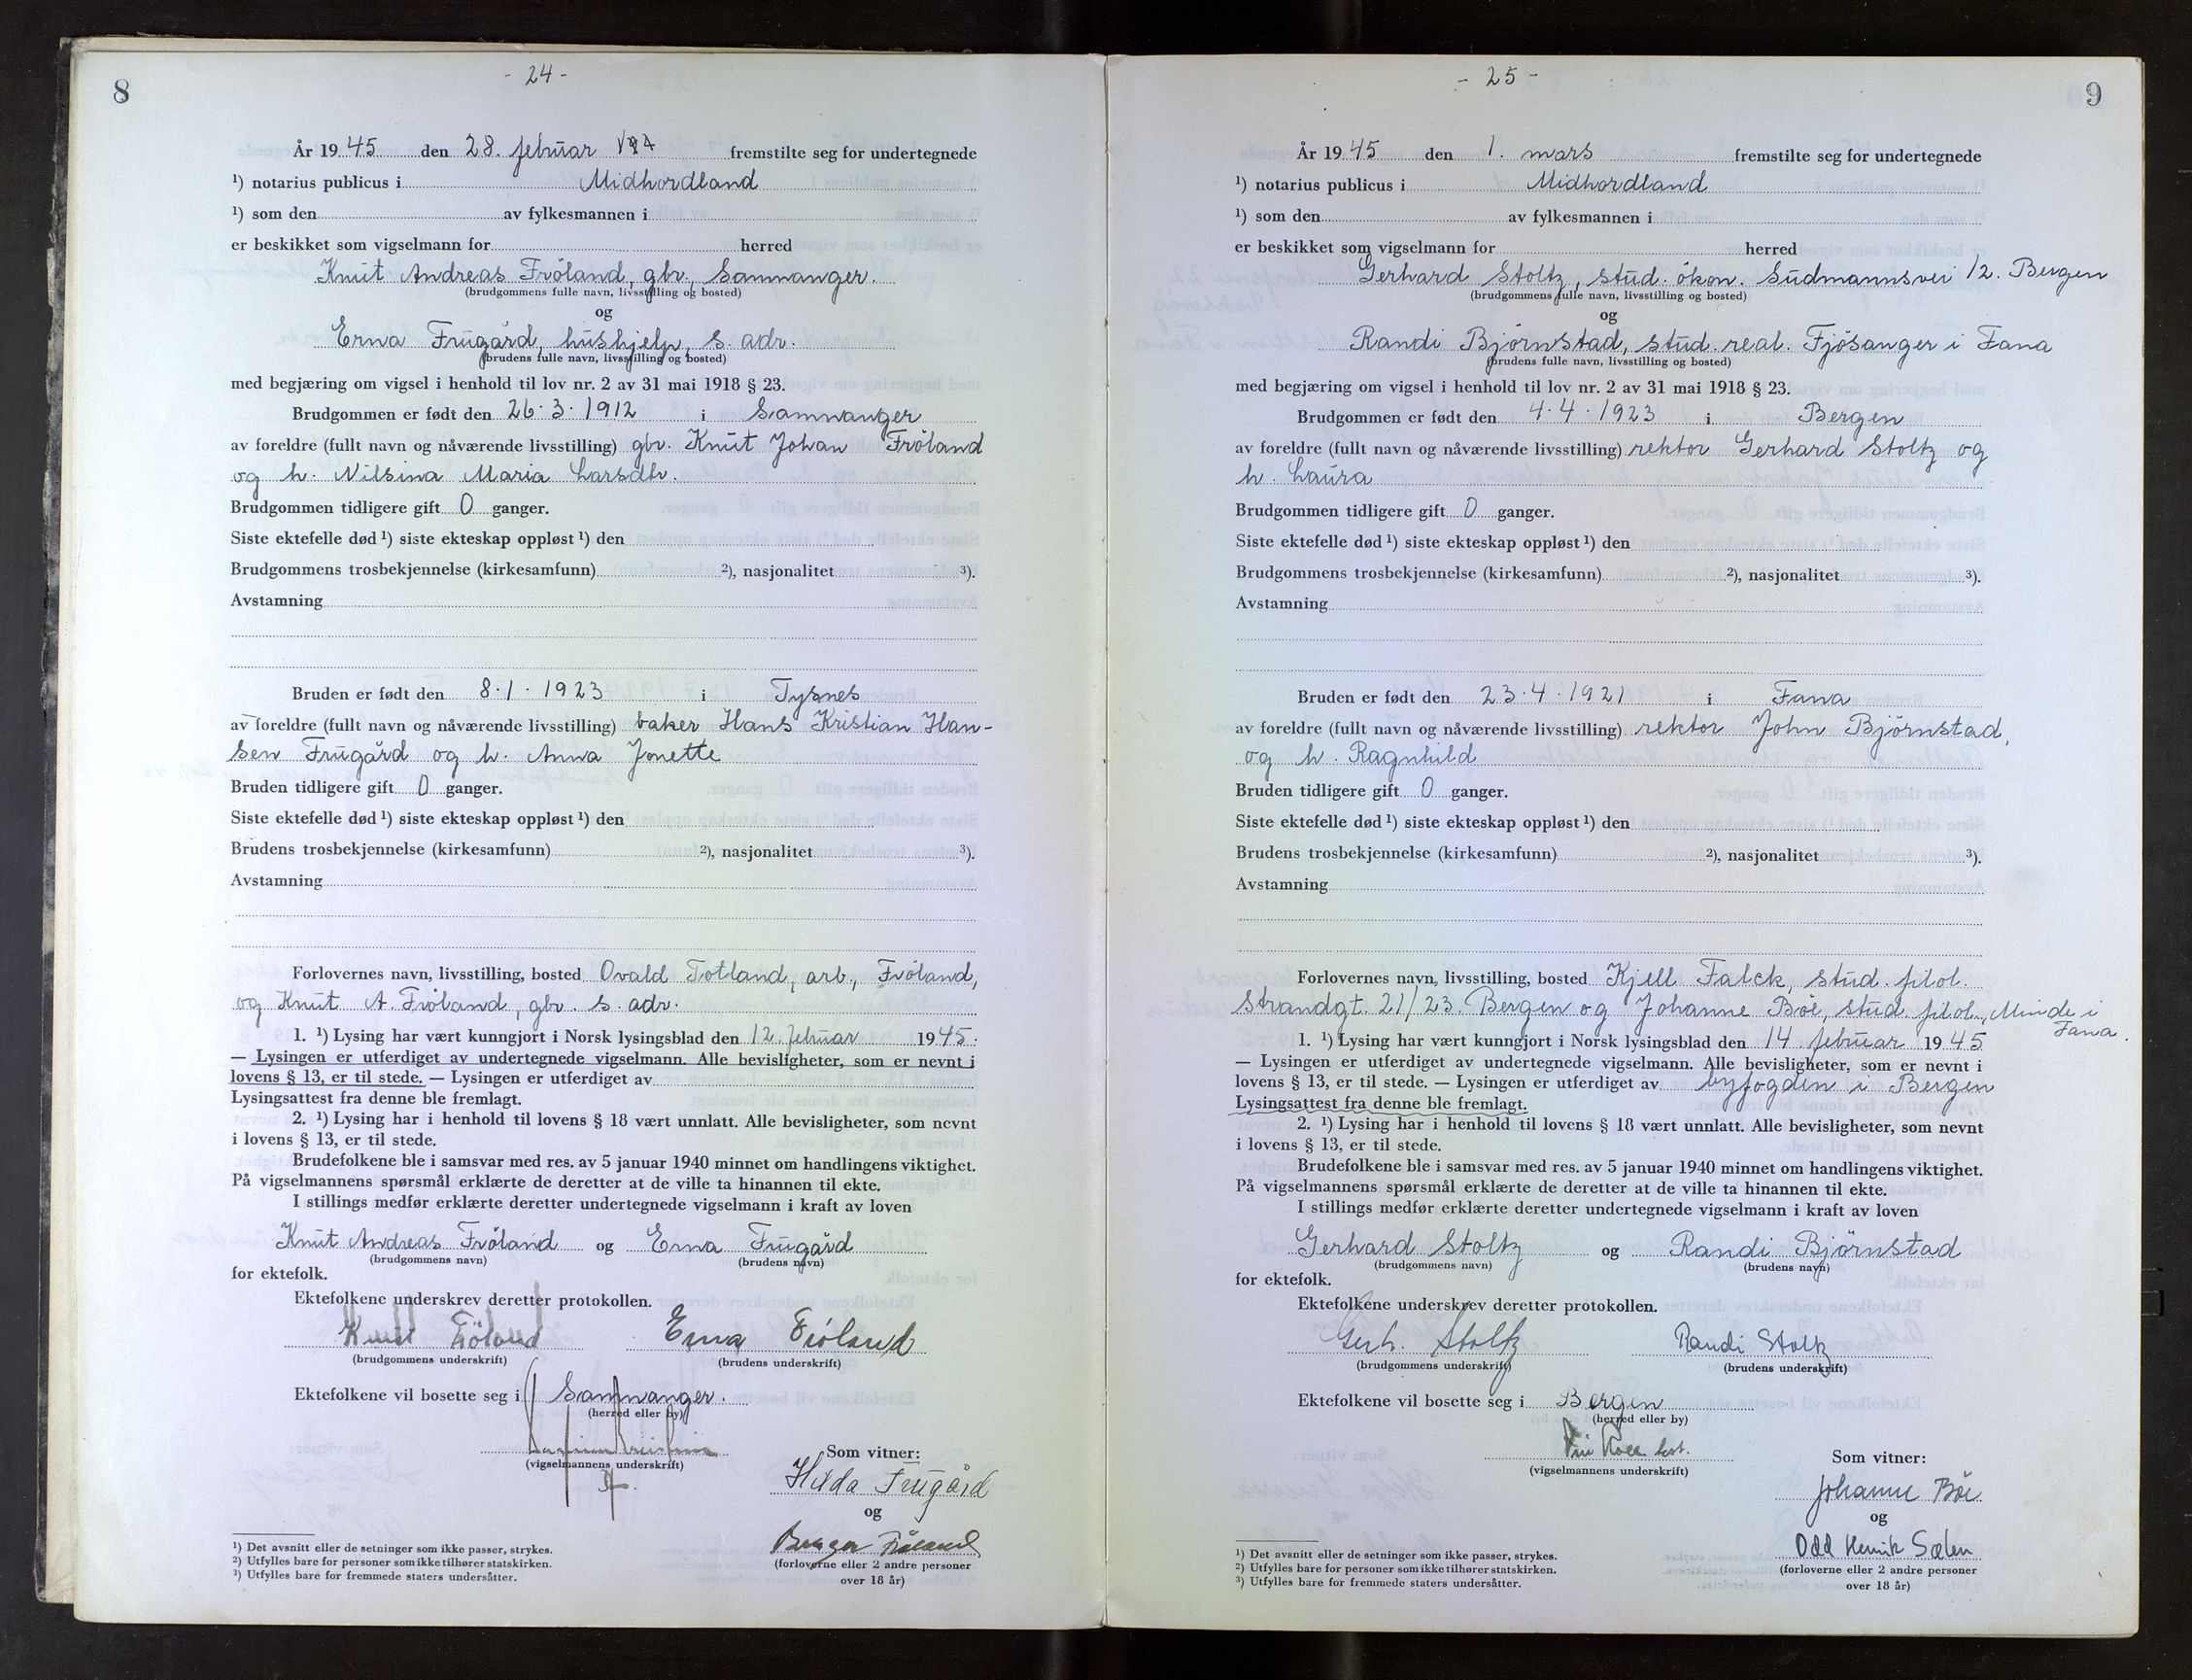 - 24 -
8
År 19 45 den 28. februar fremstilte seg for undertegnede
¹) notarius publicus i Midhordland
¹) som den av fylkesmannen i
er beskikket som vigselmann for herred
Knut Andreas Fröland, gbr., Samnanger.
(brudgommens fulle navn, livsstilling og bosted)
og
Erna Frugård, hushjelp, s. adr.
(brudens fulle navn, livsstilling og bosted)
med begjæring om vigsel i henhold til lov nr. 2 av 31 mai 1918 § 23.
Brudgommen er født den 26.3.1912 i Samnanger
av foreldre (fullt navn og nåværende livsstilling) gbr. Knut Johan Fröland
og h. Nilsina Maria Larsdtr.
Brudgommen tidligere gift 0 ganger.
Siste ektefelle død ¹) siste ekteskap oppløst ¹) den
Brudgommens trosbekjennelse (kirkesamfunn) ²), nasjonalitet ³).
Avstamning
Bruden er født den 8.1.1923 i Tysnes
av foreldre (fullt navn og nåværende livsstilling) baker Hans Kristian Han-
sen Frugård og h. Anna Jonette
Bruden tidligere gift 0 ganger.
Siste ektefelle død ¹) siste ekteskap oppløst ¹) den
Brudens trosbekjennelse (kirkesamfunn) ²), nasjonalitet ³).
Avstamning
Forlovernes navn, livsstilling, bosted Ovald Totland, arb., Fröland,
og Knut A. Fröland, gbr. s. adr.
1. ¹) Lysing har vært kunngjort i Norsk lysingsblad den 12. februar 1945.
— Lysingen er utferdiget av undertegnede vigselmann. Alle bevisligheter, som er nevnt i
lovens § 13, er til stede. — Lysingen er utferdiget av
Lysingsattest fra denne ble fremlagt.
2. ¹) Lysing har i henhold til lovens § 18 vært unnlatt. Alle bevisligheter, som nevnt
i lovens § 13, er til stede.
Brudefolkene ble i samsvar med res. av 5 januar 1940 minnet om handlingens viktighet.
På vigselmannens spørsmål erklærte de deretter at de ville ta hinannen til ekte.
I stillings medfør erklærte deretter undertegnede vigselmann i kraft av loven
Knut Andreas Fröland og Erna Frugård
(brudgommens navn) (brudens navn)
for ektefolk.
Ektefolkene underskrev deretter protokollen.
Knut Fröland Erna Fröland
(brudgommens underskrift) (brudens underskrift)
Ektefolkene vil bosette seg i Samnanger.
(herred eller by)
(vigselmannens underskrift)
Som vitner:
Hilda Frugård
og
Fröland
(forloverne eller 2 andre personer
over 18 år)
¹) Det avsnitt eller de setninger som ikke passer, strykes.
²) Utfylles bare for personer som ikke tilhører statskirken.
³) Utfylles bare for fremmede staters undersåtter.
- 25 -
9
År 19 45 den 1. mars fremstilte seg for undertegnede
¹) notarius publicus i Midhordland
¹) som den av fylkesmannen i
er beskikket som vigselmann for herred
Gerhard Stoltz, stud. ökon. Sudmannsvei 12. Bergen
(brudgommens fulle navn, livsstilling og bosted)
og
Randi Björnstad, stud. real. Fjösanger i Fana
(brudens fulle navn, livsstilling og bosted)
med begjæring om vigsel i henhold til lov nr. 2 av 31 mai 1918 § 23.
Brudgommen er født den 4.4.1923 i Bergen
av foreldre (fullt navn og nåværende livsstilling) rektor Gerhard Stoltz og
h. Laura
Brudgommen tidligere gift 0 ganger.
Siste ektefelle død ¹) siste ekteskap oppløst ¹) den
Brudgommens trosbekjennelse (kirkesamfunn) ²), nasjonalitet ³).
Avstamning
Bruden er født den 23.4.1921 i Fana
av foreldre (fullt navn og nåværende livsstilling) rektor John Björnstad,
og h. Ragnhild
Bruden tidligere gift 0 ganger.
Siste ektefelle død ¹) siste ekteskap oppløst ¹) den
Brudens trosbekjennelse (kirkesamfunn) ²), nasjonalitet ³).
Avstamning
Forlovernes navn, livsstilling, bosted Kjell Falck, stud. filol.
Strandgt. 21/23. Bergen og Johanne Böe, stud. filol., Minde i
Fana.
1. ¹) Lysing har vært kunngjort i Norsk lysingsblad den 14. februar 1945
— Lysingen er utferdiget av undertegnede vigselmann. Alle bevisligheter, som er nevnt i
lovens § 13, er til stede. — Lysingen er utferdiget av byfogden i Bergen
Lysingsattest fra denne ble fremlagt.
2. ¹) Lysing har i henhold til lovens § 18 vært unnlatt. Alle bevisligheter, som nevnt
i lovens § 13, er til stede.
Brudefolkene ble i samsvar med res. av 5 januar 1940 minnet om handlingens viktighet.
På vigselmannens spørsmål erklærte de deretter at de ville ta hinannen til ekte.
I stillings medfør erklærte deretter undertegnede vigselmann i kraft av loven
Gerhard Stoltz og Randi Björnstad
(brudgommens navn) (brudens navn)
for ektefolk.
Ektefolkene underskrev deretter protokollen.
Gerh. Stoltz Randi Stoltz
(brudgommens underskrift) (brudens underskrift)
Ektefolkene vil bosette seg i Bergen
(herred eller by)
(vigselmannens underskrift)
Som vitner:
Johanne Böe
og
Odd Henrik Sælen
(forloverne eller 2 andre personer
over 18 år)
¹) Det avsnitt eller de setninger som ikke passer, strykes.
²) Utfylles bare for personer som ikke tilhører statskirken.
³) Utfylles bare for fremmede staters undersåtter.